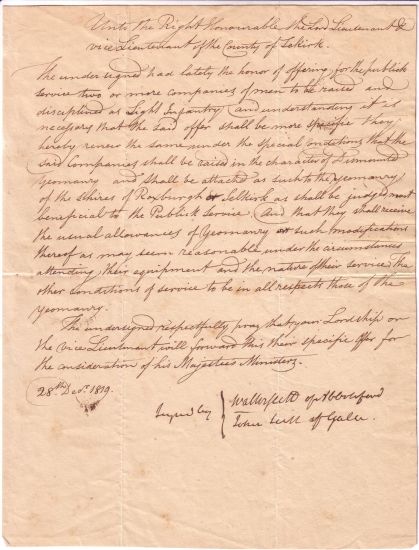 Unto the Right Honourable the Lord Lieutenant &
vice Lieutenant of the County of Selkirk.
The undersigned had lately the honor of offering for the publick
service two or more companies of men to be raised and
disciplined as Light Infantry and understanding it is
necessary that the said offer shall be more specific they
hereby renew the same under the special conditions that the
said Companies shall be raised in the character of Dismounted
Yeomanry and shall be attached as such to the Yeomanry
of the Shires of Roxburgh or Selkirk as shall be judged most
beneficial to the Publick Service And that they shall receive
the usual allowances of Yeomanry or such modifications
thereof as may seem reasonable under the circumstances
attending their equipment and the nature of their service the
other conditions of service to be in all respects those of the
Yeomanry.
The undersigned respectfully pray that your Lordship or
the vice Lieutenant will forward this their specific offer for
the consideration of his Majesties Ministers.
28th Decr. 1819.
Signed by
Walter Scott of Abbotsford
John Scott of Gala.